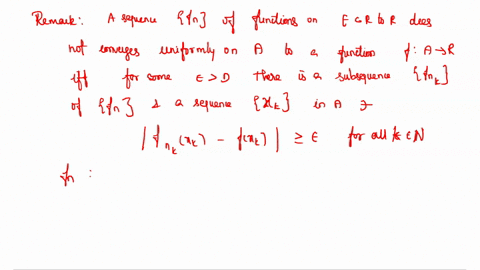 Remark: A sequence {fn} of functions on E⊂R to R does
not converges uniformly on A to a function f: A→R
iff for some ε>D there is a subsequence {f_{n_k}}
of {fn} & a sequence {x_k} in A ∋
|f_{n_k}(x_k) - f(x_k)| ≥ ε for all k ∈ N
fn :